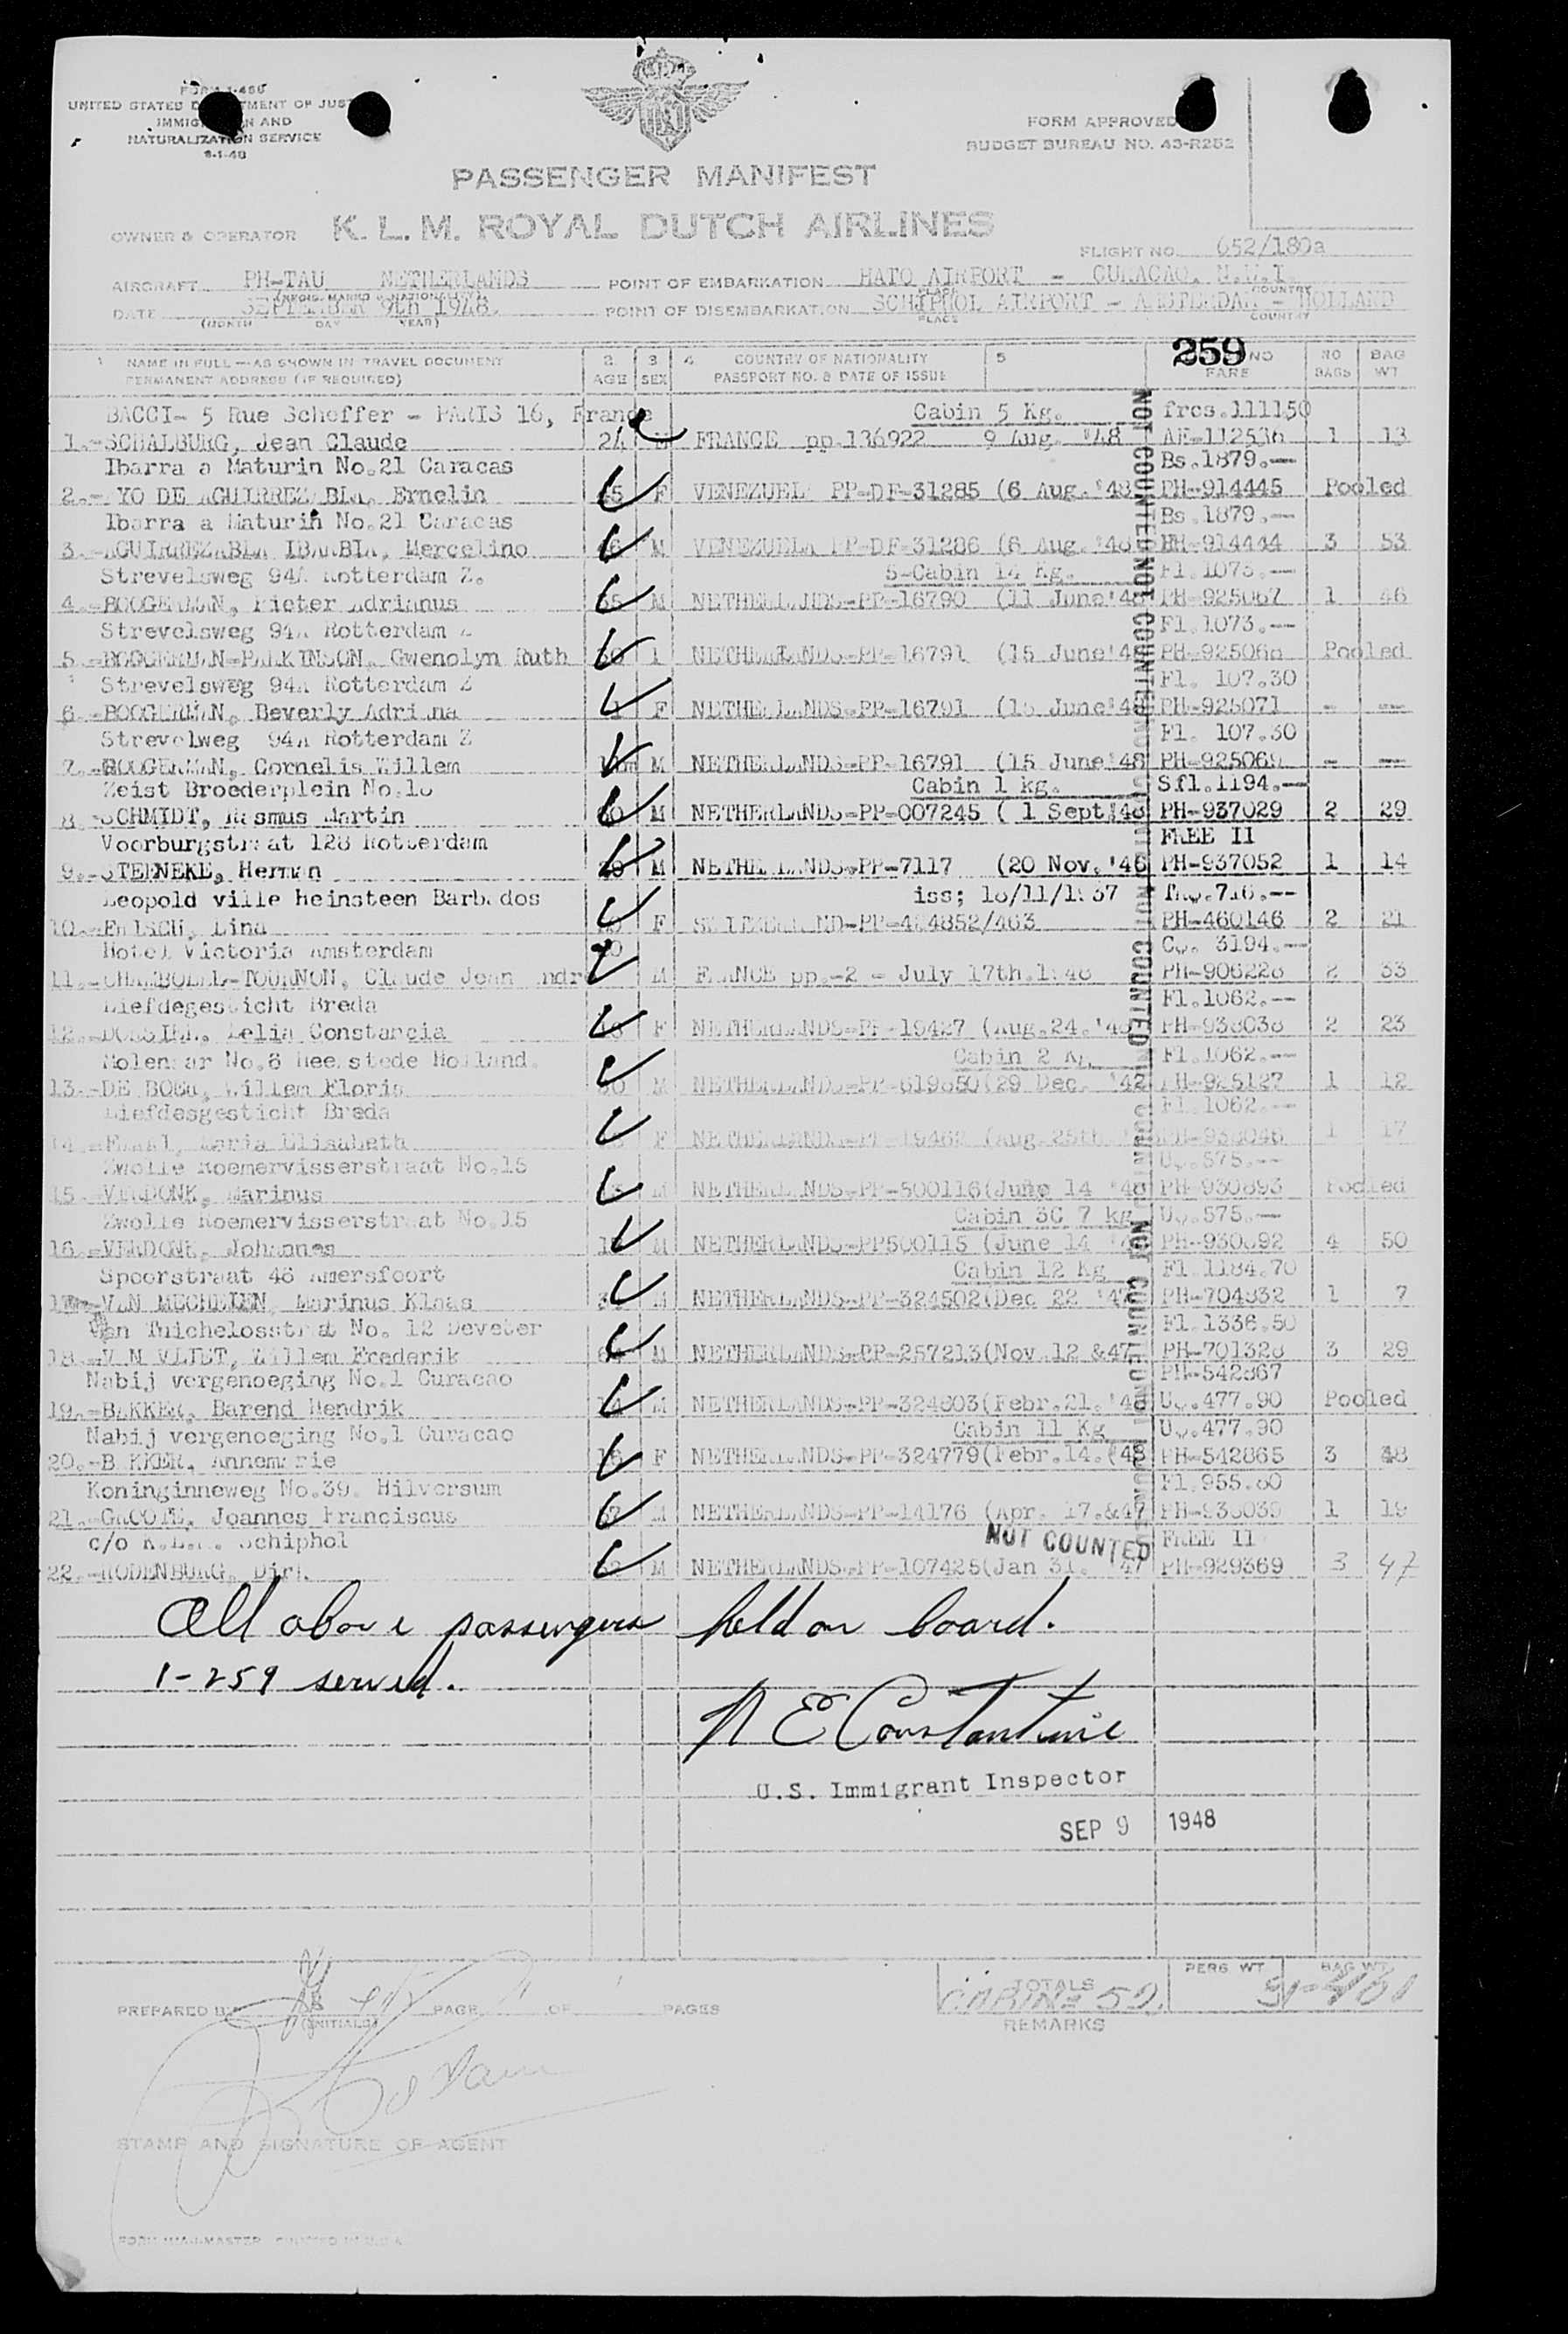 FORM I-466
UNITED STATES DEPARTMENT OF JUSTICE
IMMIGRATION AND
NATURALIZATION SERVICE
FORM APPROVED
BUDGET BUREAU NO. 43-R252
PASSENGER MANIFEST
OWNER & OPERATOR K. L. M. ROYAL DUTCH AIRLINES
FLIGHT NO. 652/180a
AIRCRAFT PH-TAU NETHERLANDS POINT OF EMBARKATION HATO AIRPORT - CURACAO, N.W.I.
(REGIS. MARKS & NATIONALITY) PLACE COUNTRY
DATE SEPTEMBER 9th 1948. POINT OF DISEMBARKATION SCHIPHOL AIRPORT - AMSTERDAM - HOLLAND
(MONTH DAY YEAR) PLACE COUNTRY
259
1 NAME IN FULL—AS SHOWN IN TRAVEL DOCUMENT 2 3 4 COUNTRY OF NATIONALITY 5 NO NO BAG
PERMANENT ADDRESS (IF REQUIRED) AGE SEX PASSPORT NO. & DATE OF ISSUE FARE BAGS WT
BACCI- 5 Rue Scheffer - PARIS 16, France Cabin 5 Kg. frcs.111150
1.-SCHALBURG, Jean Claude 24 M FRANCE pp.136922 9 Aug. '48 AH-112536 1 13
Ibarra a Maturin No.21 Caracas Bs.1879.--
2.- YO DE Ernelin F VENEZUELA PP-DF-31285 (6 Aug.'48 PH-914445 Pooled
Ibarra a Maturin No.21 Caracas Bs.1879.--
3.- Mercelino M VENEZUELA PP-DF-31286 (6 Aug.'48 PH-914444 3 53
Strevelsweg 94A Rotterdam Z. 5-Cabin 14 Kg. Fl.1073.--
4.-BOOGERMAN, Pieter Adrianus M NETHERLANDS-PP-16790 (11 June'48 PH-925067 1 46
Strevelsweg 94A Rotterdam Z Fl.1073.--
5.-BOOGERMAN-PARKINSON, Gwenolyn Ruth NETHERLANDS-PP-16791 (15 June'48 Pooled
Strevelsweg 94A Rotterdam Z Fl. 107.30
6.-BOOGERMAN, Beverly Adriana F NETHERLANDS-PP-16791 (15 June'48 PH-925071 - --
Strevelweg 94A Rotterdam Z Fl. 107.30
7.-BOOGERMAN, Cornelis Willem M NETHERLANDS-PP-16791 (15 June'48 - --
Zeist Broederplein No. Cabin 1 kg. Sfl.1194.--
8.-SCHMIDT, Rasmus Martin M NETHERLANDS-PP-007245 ( 1 Sept'48 PH-937029 2 29
Voorburgstraat 128 Rotterdam FREE II
9.-STERNEKE, Herman M NETHERLANDS-PP-7117 (20 Nov.'46 PH-937052 1 14
Leopold ville Heinsteen Barbados iss; 18/11/1937
10.- Lina F PH-460146 2 21
Hotel Victoria Amsterdam 3194.--
11.- Claude Jean Andre M FRANCE pp.-2 - July 17th.1948 PH-906228 2 33
Liefdegesticht Breda Fl.1062.--
12.- Constancia F NETHERLANDS-PP-19427 (Aug.24.'48 PH-938038 2 23
Cabin 2 Kg. Fl.1062.--
13.-DE BOER, Willem Floris M NETHERLANDS-PP-619850(29 Dec. '42 PH-925127 1 12
Liefdesgesticht Breda Fl.1062.--
14.- Maria Elisabeth F (Aug.25th 1 17
Zwolle Roemervisserstraat No.15 575.--
15.-VERDONK, Marinus M NETHERLANDS-PP-500116(June 14 '48 PH-930893 Pooled
Zwolle Roemervisserstraat No.15 Cabin 7 kg 575.--
16.-VERDONK, Johannes M NETHERLANDS-PP500115 (June 14 PH-930892 4 50
Spoorstraat 46 Amersfoort Cabin 12 Kg Fl.1184.70
17.-VAN Marinus Klaas M NETHERLANDS-PP-324502(Dec 22 '47 PH-704832 1 7
No. 12 Deveter Fl.1336.50
18.-VAN VLIET, Willem Frederik M NETHERLANDS-PP-257213(Nov.12 &47 PH-701328 3 29
Nabij vergenoeging No.1 Curacao PH-542867
19.-BAKKER, Barend Hendrik M NETHERLANDS-PP-324803(Febr.21.'48 477.90 Pooled
Nabij vergenoeging No.1 Curacao Cabin 11 Kg 477.90
20.-BAKKER, Annemarie F NETHERLANDS-PP-324779(Febr.14.'48 PH-542865 3 48
Koninginneweg No.39. Hilversum Fl.955.80
21.- Joannes Franciscus M NETHERLANDS-PP-14176 (Apr. 17.&47 PH-938039 1 19
c/o K.L.M. Schiphol NOT COUNTED FREE II
22.-RODENBURG, Dirk M NETHERLANDS-PP-107425(Jan 31. '47 PH-929369 3 47
NOT COUNTED NOT COUNTED NOT COUNTED NOT COUNTED
All above passengers held on board.
1-259 served.
N E Constantine
U.S. Immigrant Inspector
SEP 9 1948
PREPARED BY PAGE OF PAGES TOTALS PERS WT BAG WT
(INITIALS) CABIN= 52
REMARKS
STAMP AND SIGNATURE OF AGENT